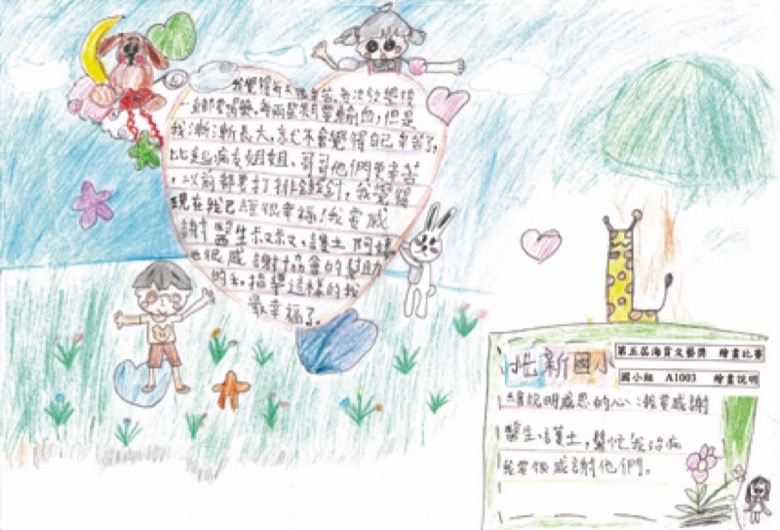 我覺得每天很辛苦,每次放學後
都要唱藥,每兩星期要輸血,但是
我漸漸長大,就不會覺得自己辛苦了,
比起病友姐姐、哥哥他們更辛苦
,以前都要打排鐵針,我覺得
現在我已經很幸福!我要感
謝醫生叔叔、護士阿姨
也很感謝協會的幫助
的和指導這樣的我
最幸福了。
北新國小
第五屆海貧文藝獎 繪畫比賽
國小組 A1003 繪畫說明
說明感恩的心:我要感謝
醫生、護士,幫忙我治病
我要很感謝他們。